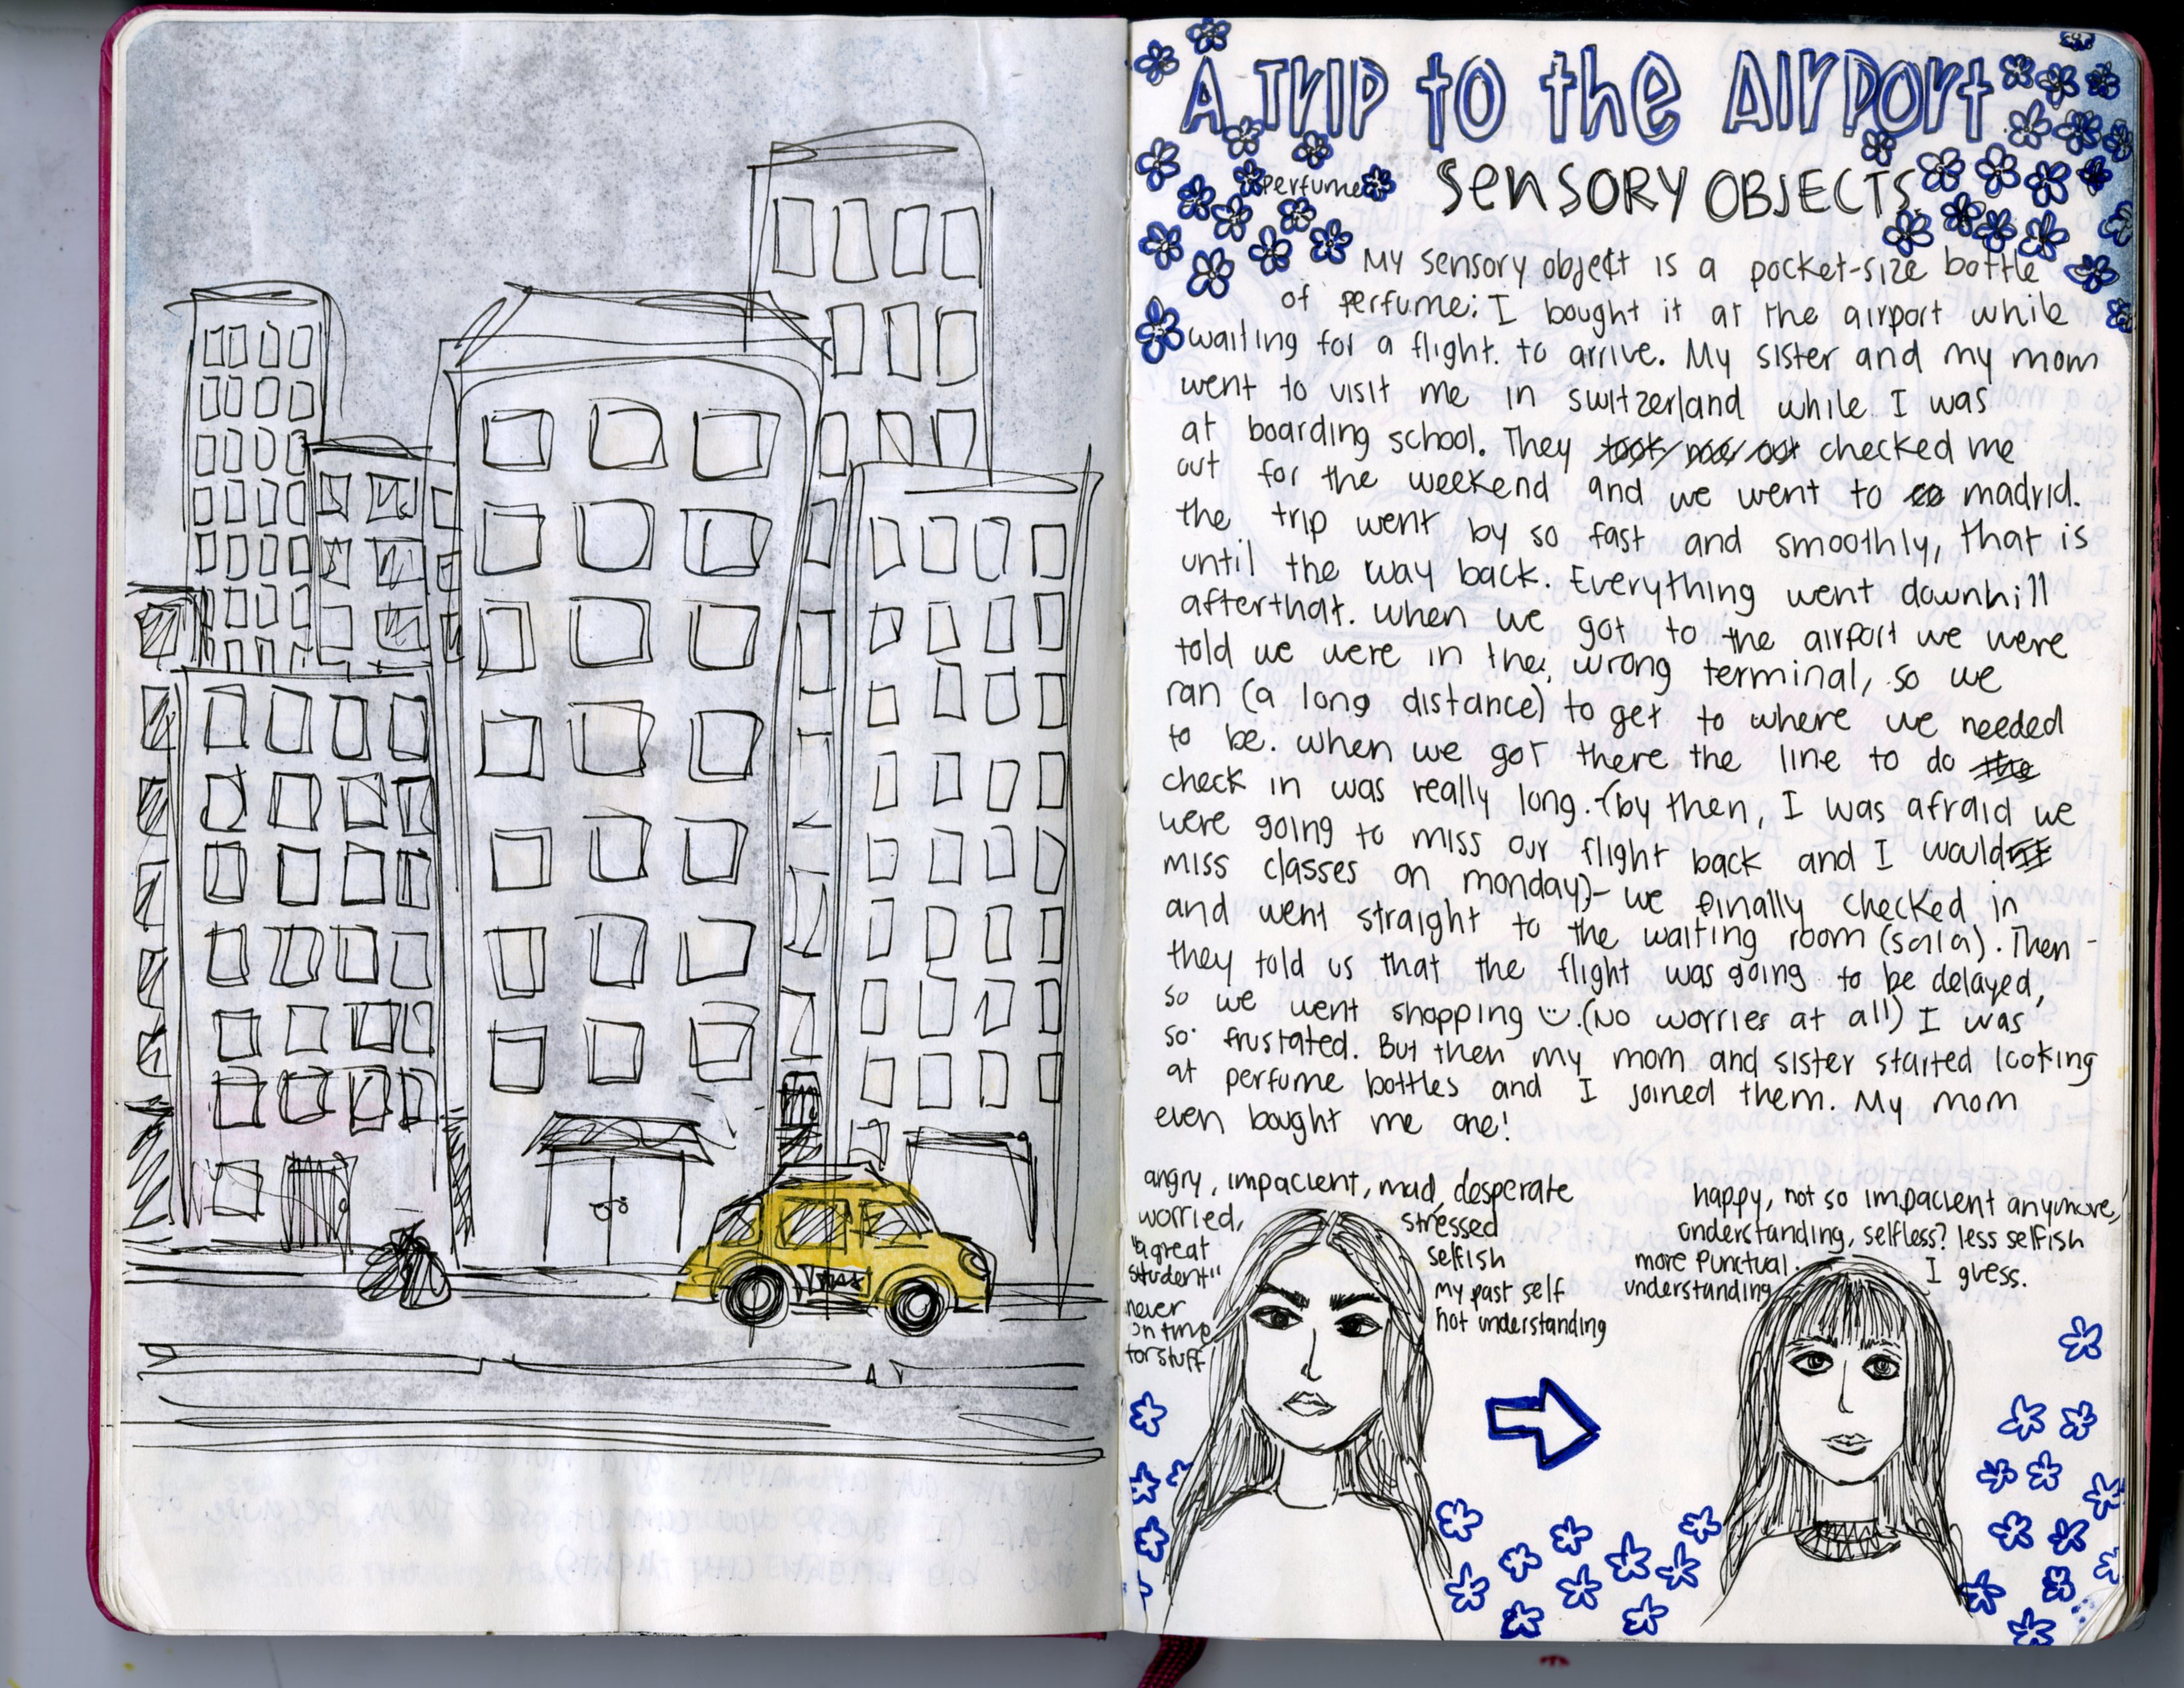 A TRIP to the AIRPORT
perfume
SENSORY OBJECTS
My sensory object is a pocket-size bottle
of perfume; I bought it at the airport while
waiting for a flight. to arrive. My sister and my mom
went to visit me in switzerland while I was
at boarding school. They took me out checked me
out for the weekend and we went to madrid.
the trip went by so fast and smoothly, that is
until the way back. Everything went downhill
after that. when we got to the airport we were
told we were in the wrong terminal, so we
ran (a long distance) to get to where we needed
to be. when we got there the line to do the
check in was really long. -(by then, I was afraid we
were going to miss our flight back and I would
miss classes on monday)- we finally checked in
and went straight to the waiting room (sala). Then -
they told us that the flight was going to be delayed,
so we went shopping :). (No worries at all) I was
so frustated. But then my mom and sister started looking
at perfume bottles and I joined them. My mom
even bought me one!
angry, impacient, mad, desperate
worried,
"a great
student"
never
on time
for stuff
stressed
selfish
my past self
not understanding
happy, not so impacient anymore,
understanding, selfless? less selfish
more punctual.
I guess.
understanding